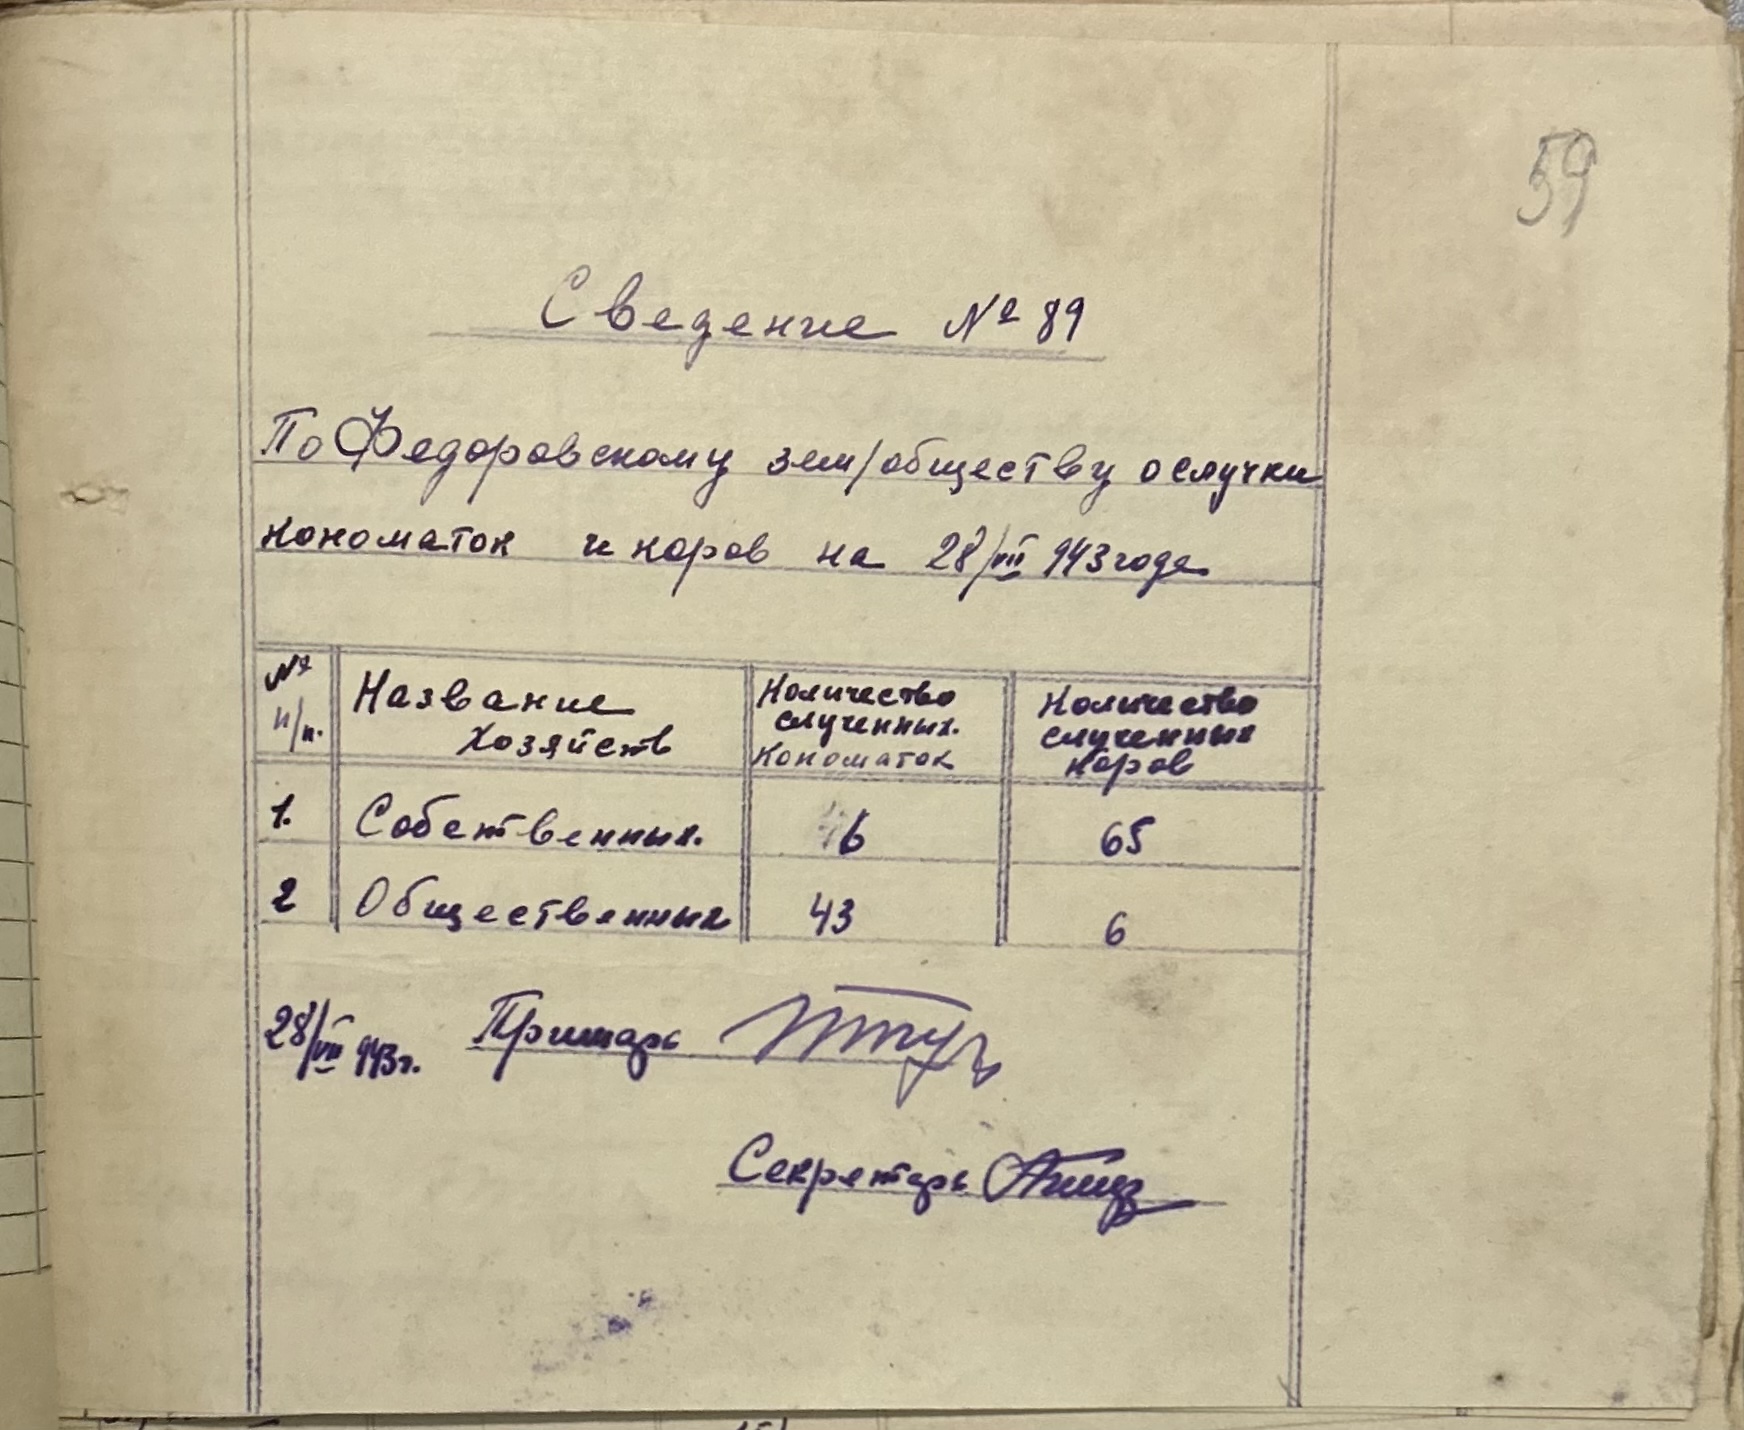 59
Сведение № 89
По Федоровскому зем/обществу о случки
кономаток и коров на 28/VIII 943 года
№ п/п. Название Хозяйств Количество слученных. Кономаток Количество слученных коров
1. Собственных. 6 65
2 Общественных 43 6
28/VIII 943 г. Примарь
Секретарь